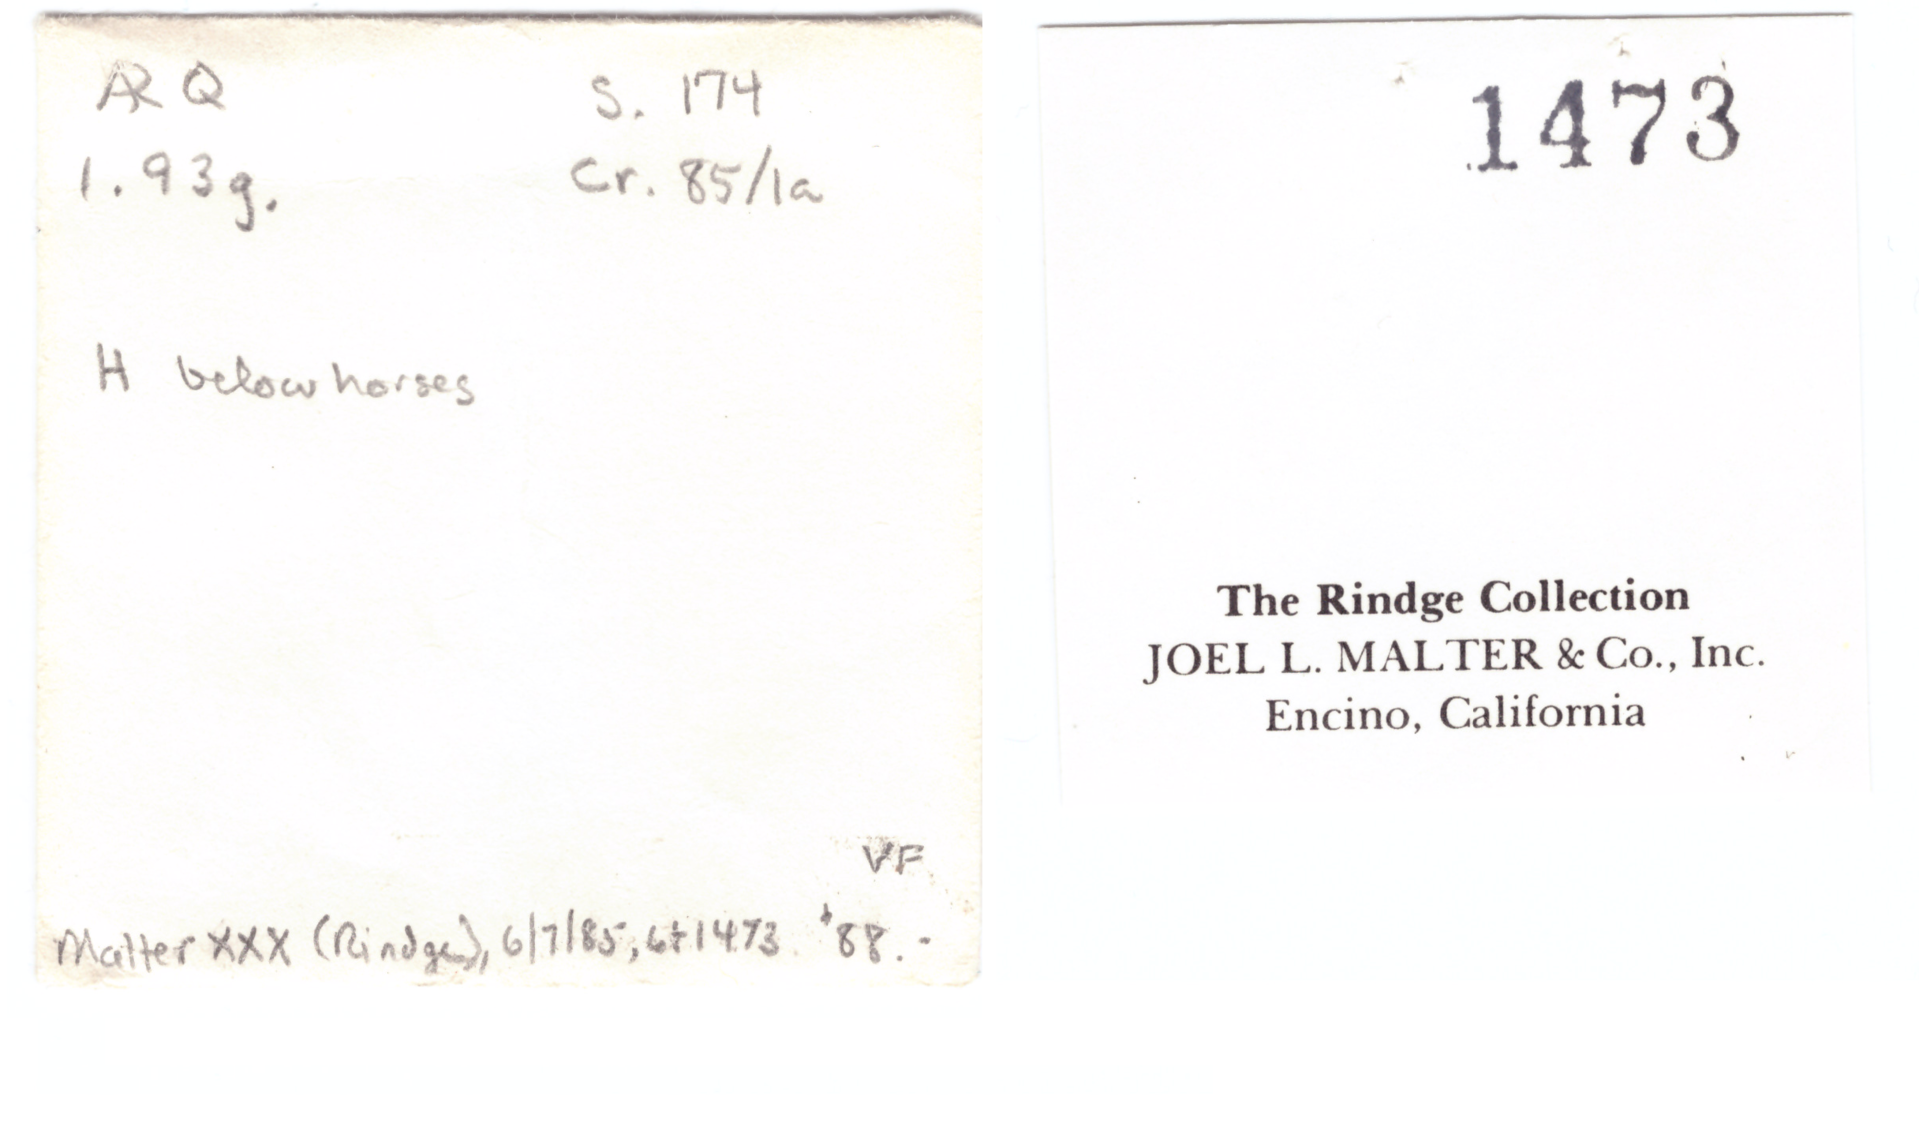 AR Q
S. 174
1.93g.
Cr. 85/1a
H below horses
VF
Malter XXX (Rindge), 6/7/85, lot 1473. $88.-
1473
The Rindge Collection
JOEL L. MALTER & Co., Inc.
Encino, California